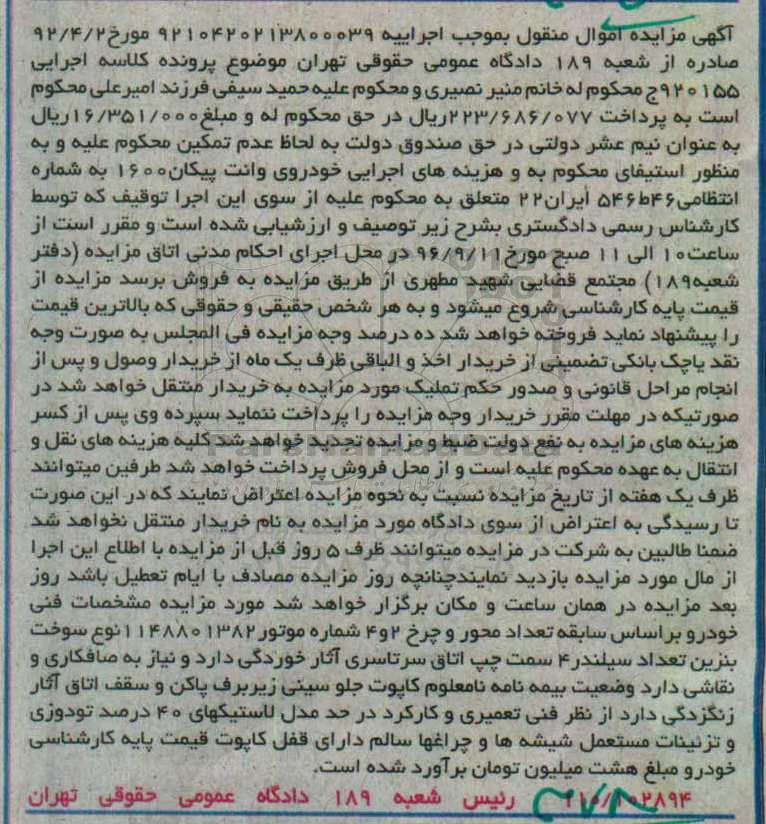 آگهی مزایده اموال منقول بموجب اجراییه ۹۲۱۰۴۲۰۲۱۳۸۰۰۰۳۹ مورخ۹۲/۴/۲
صادره از شعبه ۱۸۹ دادگاه عمومی حقوقی تهران موضوع پرونده کلاسه اجرایی
۹۲۰۱۵۵ج محکوم له خانم منیر نصیری و محکوم علیه حمید سیفی فرزند امیرعلی محکوم
است به پرداخت ۲۲۳/۶۸۶/۰۷۷ریال در حق محکوم له و مبلغ۱۶/۳۵۱/۰۰۰ریال
به عنوان نیم عشر دولتی در حق صندوق دولت به لحاظ عدم تمکین محکوم علیه و به
منظور استیفای محکوم به و هزینه های اجرایی خودروی وانت پیکان۱۶۰۰ به شماره
انتظامی۴۶ط۵۴۶ ایران۲۲ متعلق به محکوم علیه از سوی این اجرا توقیف که توسط
کارشناس رسمی دادگستری بشرح زیر توصیف و ارزشیابی شده است و مقرر است از
ساعت۱۰ الی ۱۱ صبح مورخ۹۶/۹/۱۱ در محل اجرای احکام مدنی اتاق مزایده (دفتر
شعبه۱۸۹) مجتمع قضایی شهید مطهری از طریق مزایده به فروش برسد مزایده از
قیمت پایه کارشناسی شروع میشود و به هر شخص حقیقی و حقوقی که بالاترین قیمت
را پیشنهاد نماید فروخته خواهد شد ده درصد وجه مزایده فی المجلس به صورت وجه
نقد یاچک بانکی تضمینی از خریدار اخذ و الباقی ظرف یک ماه از خریدار وصول و پس از
انجام مراحل قانونی و صدور حکم تملیک مورد مزایده به خریدار منتقل خواهد شد در
صورتیکه در مهلت مقرر خریدار وجه مزایده را پرداخت ننماید سپرده وی پس از کسر
هزینه های مزایده به نفع دولت ضبط و مزایده تجدید خواهد شد کلیه هزینه های نقل و
انتقال به عهده محکوم علیه است و از محل فروش پرداخت خواهد شد طرفین میتوانند
ظرف یک هفته از تاریخ مزایده نسبت به نحوه مزایده اعتراض نمایند که در این صورت
تا رسیدگی به اعتراض از سوی دادگاه مورد مزایده به نام خریدار منتقل نخواهد شد
ضمنا طالبین به شرکت در مزایده میتوانند ظرف ۵ روز قبل از مزایده با اطلاع این اجرا
از مال مورد مزایده بازدید نمایندچنانچه روز مزایده مصادف با ایام تعطیل باشد روز
بعد مزایده در همان ساعت و مکان برگزار خواهد شد مورد مزایده مشخصات فنی
خودرو براساس سابقه تعداد محور و چرخ ۲و۴ شماره موتور۱۱۴۸۸۰۱۳۸۲نوع سوخت
بنزین تعداد سیلندر۴ سمت چپ اتاق سرتاسری آثار خوردگی دارد و نیاز به صافکاری و
نقاشی دارد وضعیت بیمه نامه نامعلوم کاپوت جلو سینی زیربرف پاکن و سقف اتاق آثار
زنگزدگی دارد از نظر فنی تعمیری و کارکرد در حد مدل لاستیکهای ۴۰ درصد تودوزی
و تزئینات مستعمل شیشه ها و چراغها سالم دارای قفل کاپوت قیمت پایه کارشناسی
خودرو مبلغ هشت میلیون تومان برآورد شده است.
۱۱۰/۱۰۲۸۹۴ رئیس شعبه ۱۸۹ دادگاه عمومی حقوقی تهران